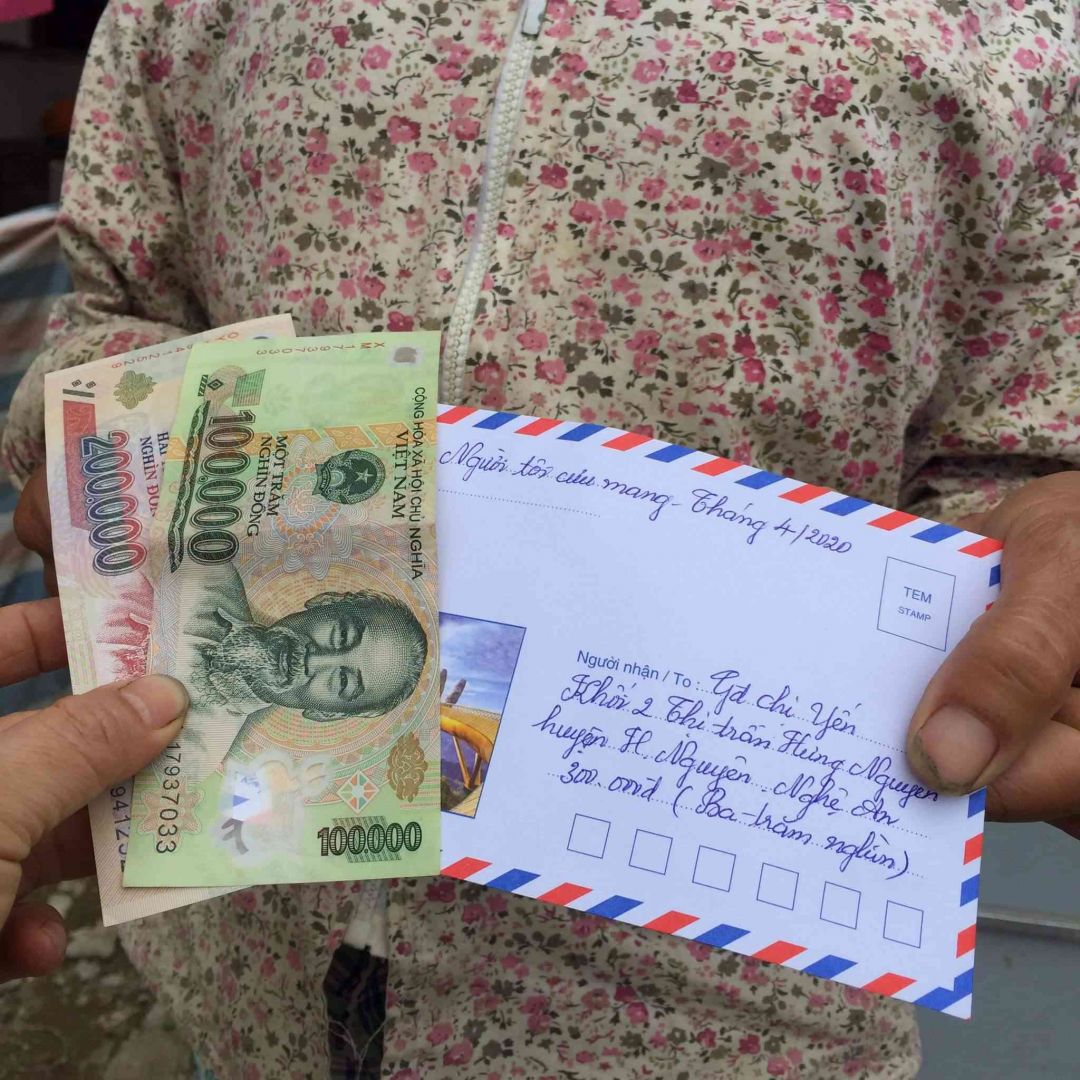 CỘNG HOÀ XÃ HỘI CHỦ NGHĨA
VIỆT NAM
MỘT TRĂM
NGHÌN ĐỒNG
100000
XM 17937033
17937033
100.000
NGHÌN ĐỒN
200000
Người tôi cưu mang - Tháng 4/2020
TEM
STAMP
Người nhận / To : Gđ chị Yến
Khối 2 Thị trấn Hưng Nguyên
huyện H. Nguyên. Nghệ An
300.000đ (Ba trăm nghìn)